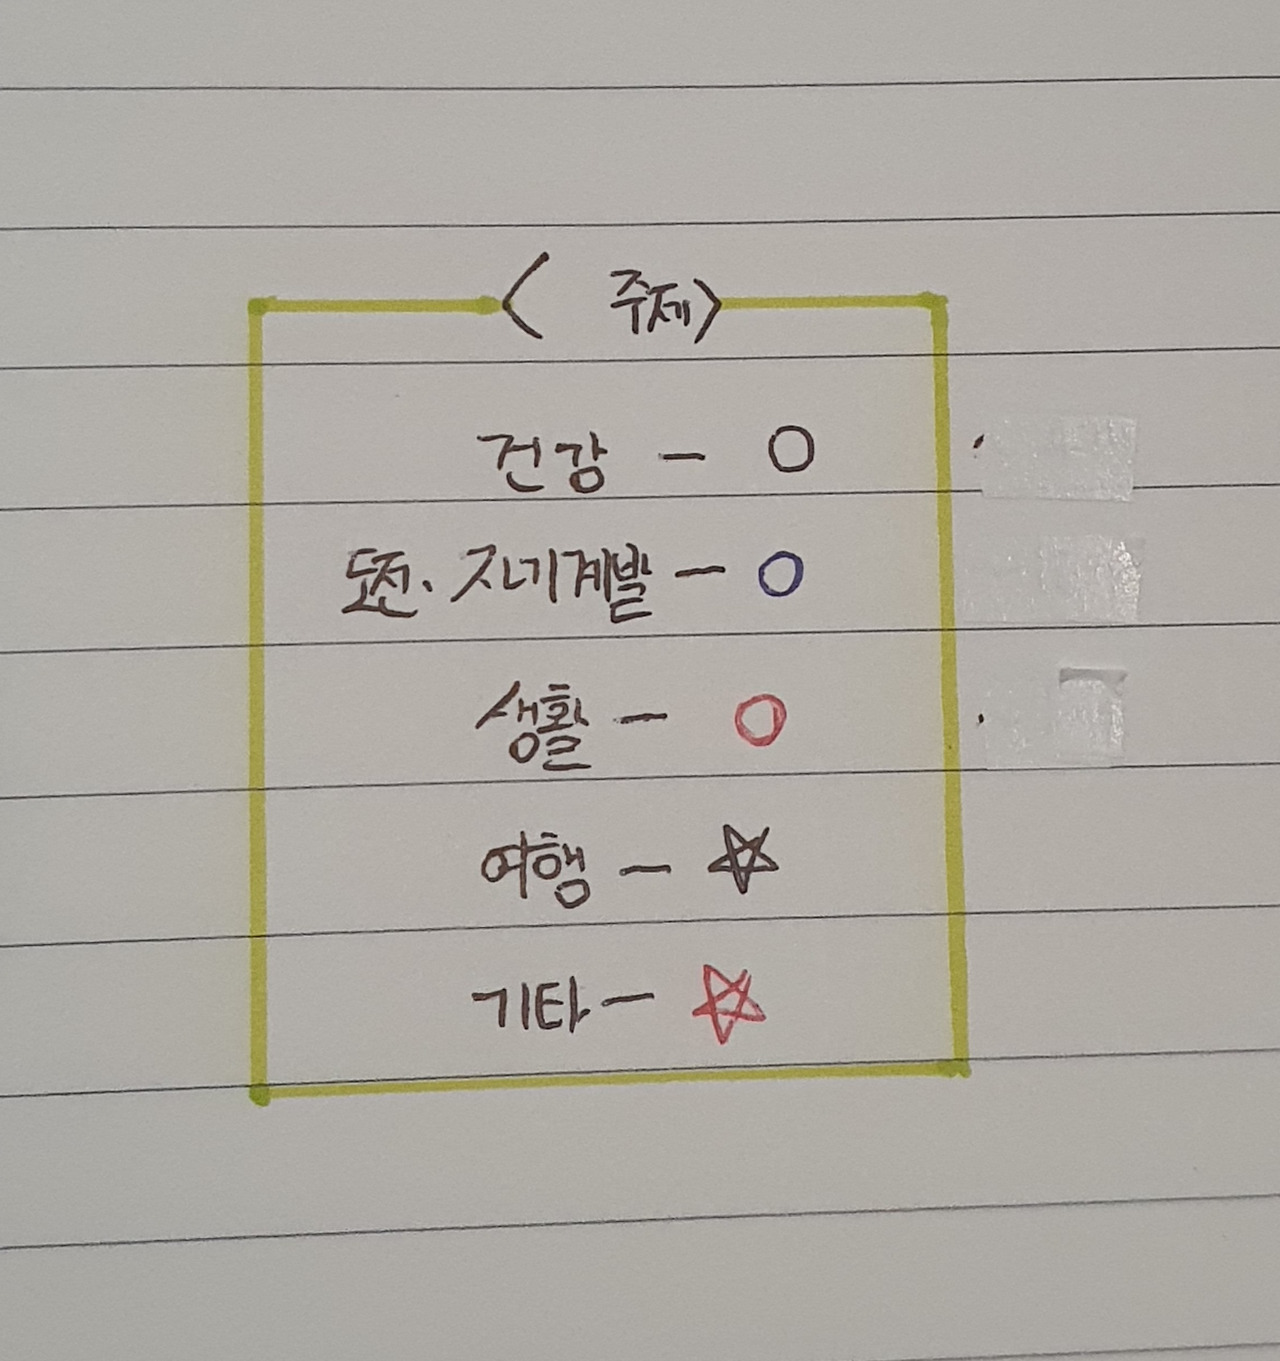 < 주제>
건강 - ○
도전·자기계발 - ○
생활 - ○
여행 - ☆
기타 - ☆